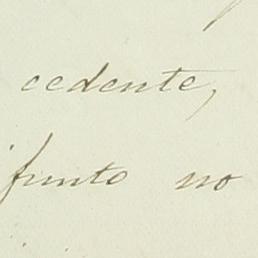 cedente,
junto no